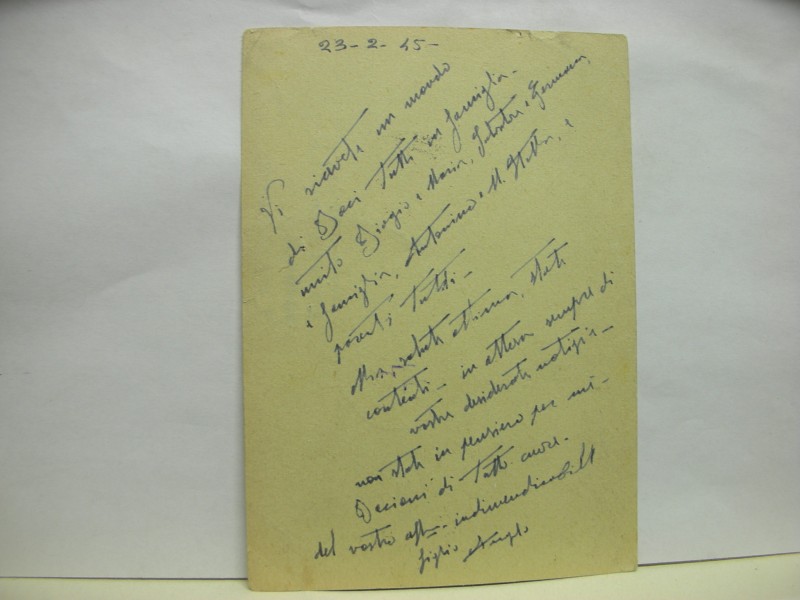 23-2-45-
Vi ricevete un mondo
di Baci tutti in famiglia-
unito Biagio e Maria, Salvatore e Germana,
e famiglia, Antonino e M. Stella, e
parenti tutti-
salute ottima, state
contenti- in attesa sempre di
vostre desiderate notizie-
non state in pensiero per mè-
Bacioni di tutto cuore.
del vostro aff. indimendicabile
figlio Angelo